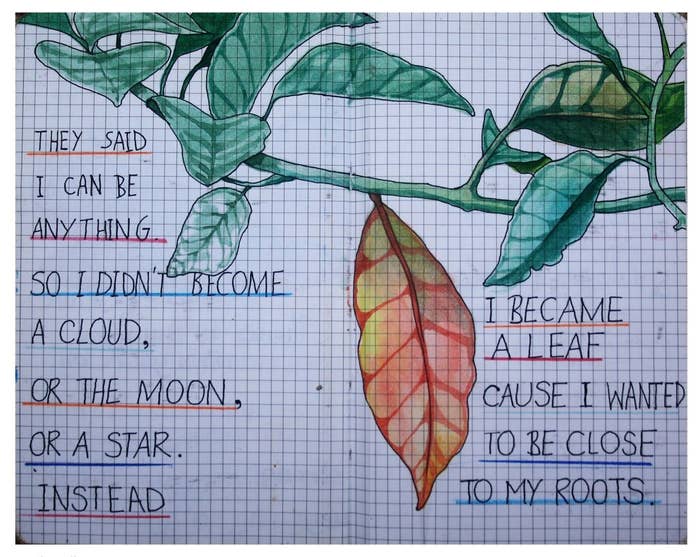 THEY SAID
I CAN BE
ANYTHING
SO I DIDN'T BECOME
A CLOUD,
OR THE MOON,
OR A STAR.
INSTEAD
I BECAME
A LEAF
CAUSE I WANTED
TO BE CLOSE
TO MY ROOTS.